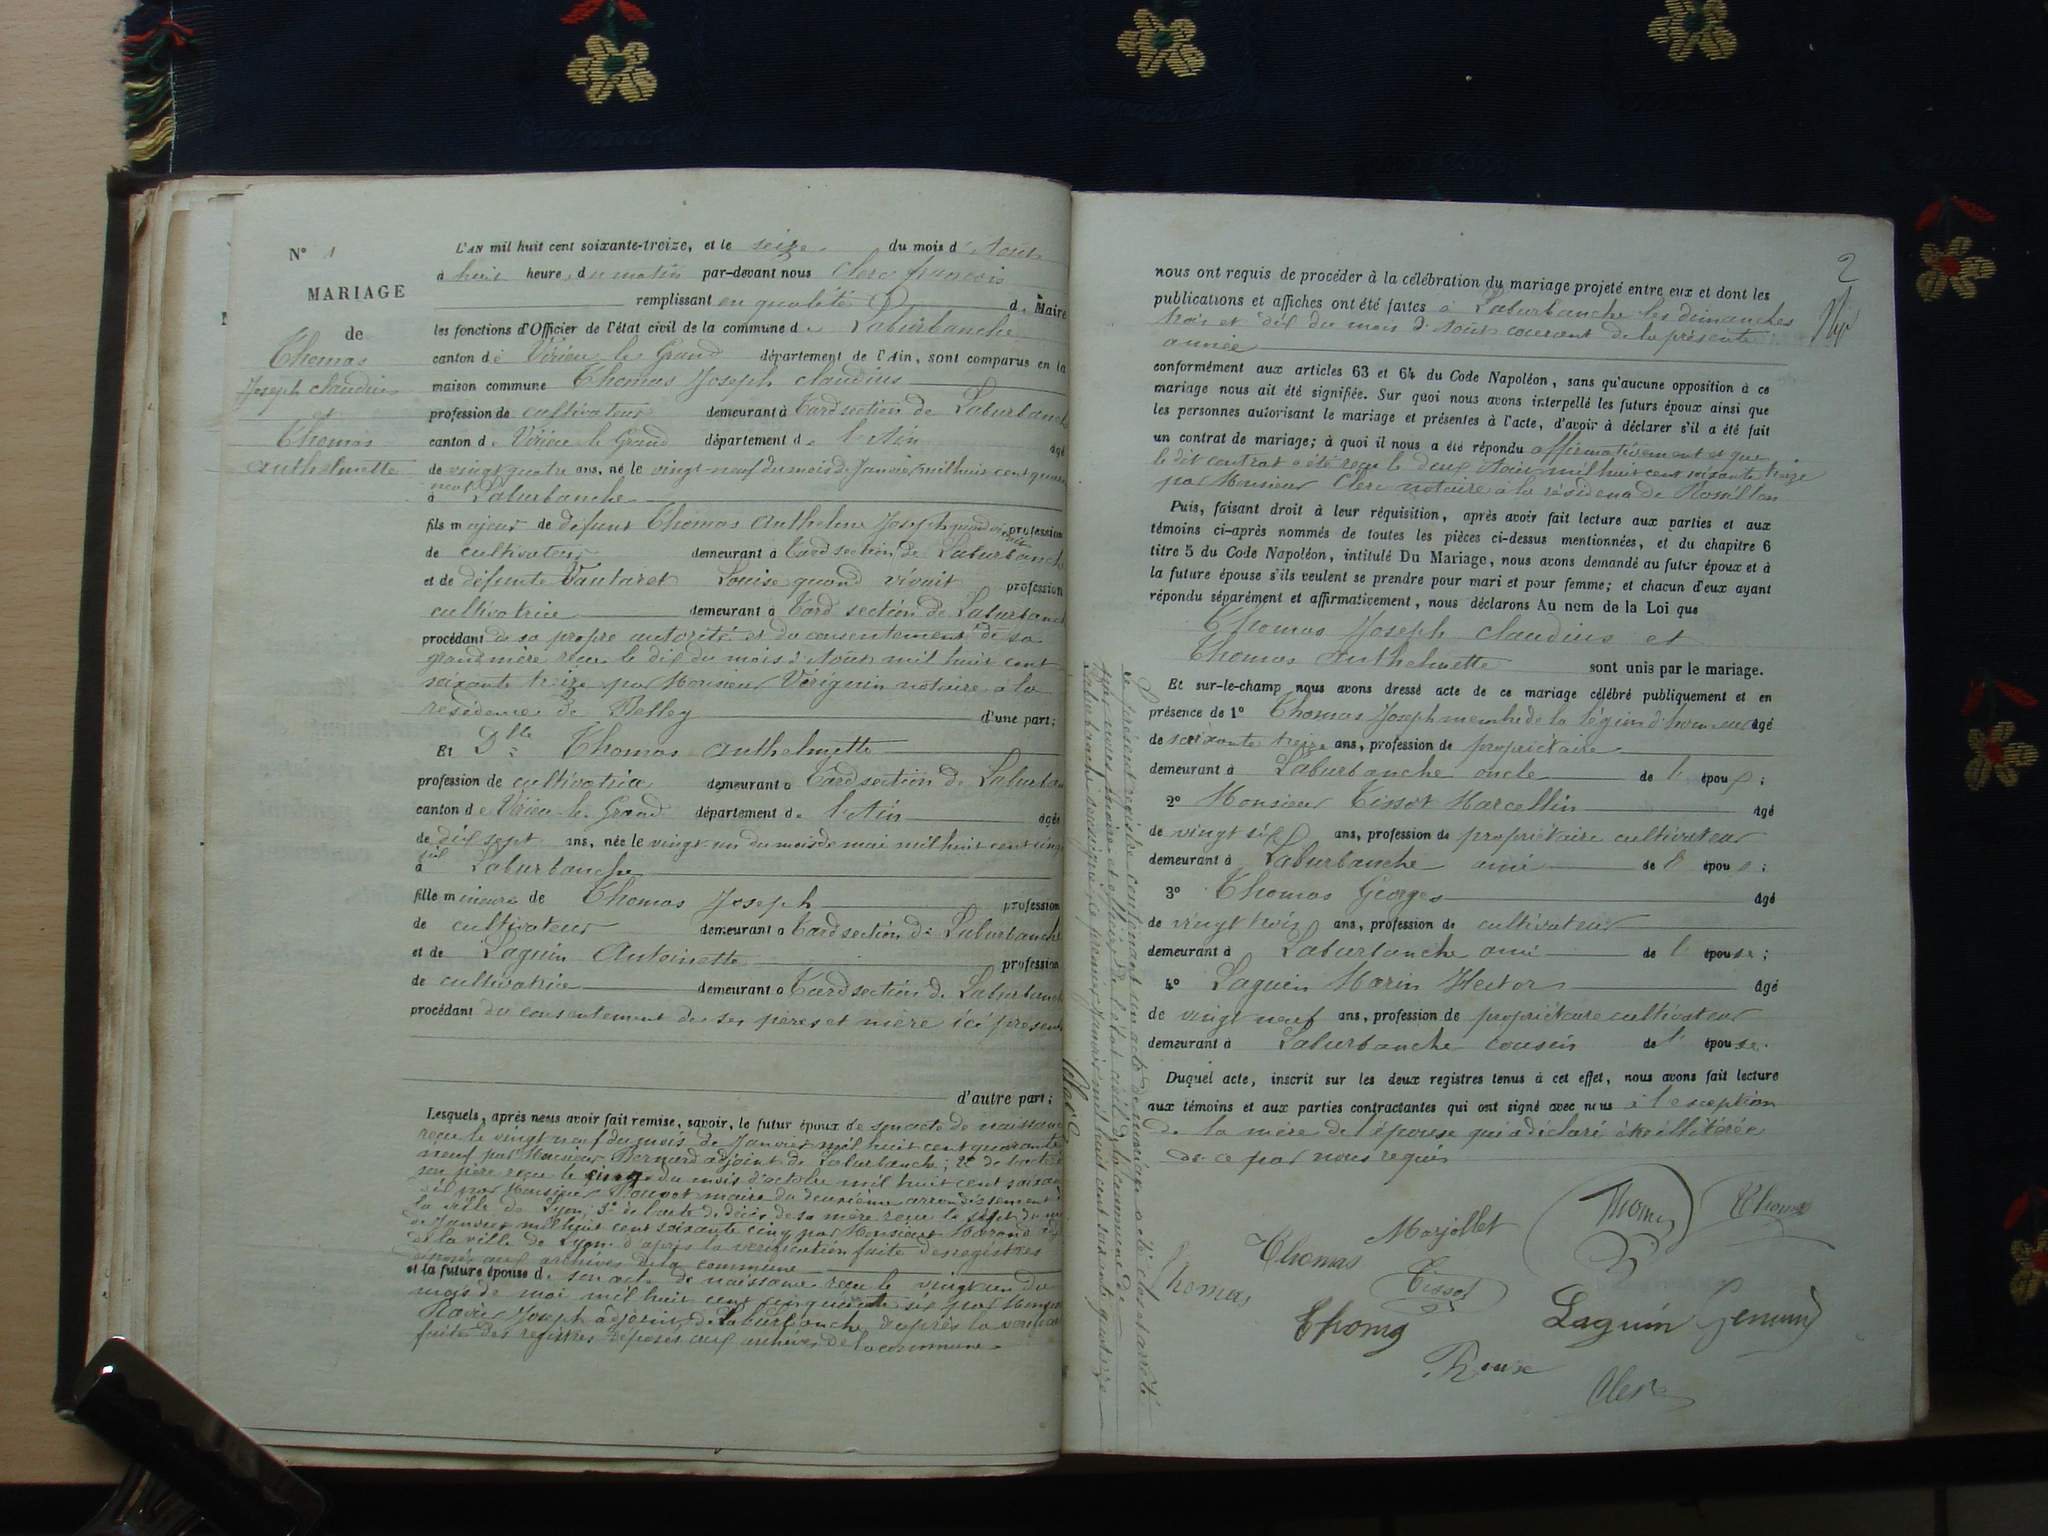 N° 1
MARIAGE
de
Thomas
Joseph claudius
et
Thomas
anthelmette
L'AN mil huit cent soixante-treize, et le seize du mois d'Aout
à huit heure du matin par-devant nous Clerc francois
remplissant en qualité de Maire
les fonctions d'Officier de l'état civil de la commune de Laburbanche
canton de Virieu le Grand département de l'Ain, sont comparus en la
maison commune Thomas Joseph claudius
profession de cultivateur demeurant à Tard section de Laburbanch
canton de Virieu le Grand département de l'Ain agé
de vingt quatre ans, né le vingt-neuf du mois de Janvier mil huit cent quaran
neuf
à Laburbanche
fils majeur de défunt Thomas anthelme Joseph quand vivait profession
de cultivateur demeurant à Tard section de Laburbanch
et de défunte Vautaret Louise quand vivait profession
cultivatrice demeurant à Tard section de Laburbanch
procédant de sa propre autorité et du consentement de sa
grand mère recu le dix du mois d'Aout mil huit cent
soixante treize par Monsieur Veriguin notaire à la
résidence de Belley d'une part;
Et Dlle Thomas anthelmette
profession de cultivatrice demeurant à Tard section de Laburba
canton de Virieu le Grand département de l'Ain agée
de dix sept ans, née le vingt-un du mois de mai mil huit cent cinq
six
à Laburbanche
fille mineure de Thomas Joseph profession
de cultivateur demeurant à Tard section de Laburbanche
et de Laguin Antoinette profession
de cultivatrice demeurant à Tard section de Laburbanch
procédant du consentement de ses pères et mère ici présents
d'autre part;
Lesquels, après nous avoir fait remise, savoir, le futur époux de son acte de naissance
recu le vingt neuf du mois de Janvier mil huit cent quarante
neuf par Monsieur Bernard adjoint de Laburbanche; 2° de l'acte
son père recu le cinq du mois d'octobre mil huit cent soixan
six par Monsieur maire du deuxième arrondissement
la ville de Lyon; 3° de l'acte de décès de sa mère recu le sept du
de Janvier mil huit cent soixante cinq par Monsieur
de la ville de Lyon d'après la vérification faite des registres
déposés aux archives de la commune
et la future épouse de son acte de naissance recu le vingt un du
mois de mai mil huit cent cinquante six par Monsieur
Joseph adjoint de Laburbanche d'après la verification
faite des registres déposés aux archives de la commune
Clerc
2
nous ont requis de procéder à la célébration du mariage projeté entre eux et dont les
publications et affiches ont été faites à Laburbanche les dimanches
trois et dix du mois d'Aout courant de la présente
année
conformément aux articles 63 et 64 du Code Napoléon, sans qu'aucune opposition à ce
mariage nous ait été signifiée. Sur quoi nous avons interpellé les futurs époux ainsi que
les personnes autorisant le mariage et présentes à l'acte, d'avoir à déclarer s'il a été fait
un contrat de mariage; à quoi il nous a été répondu affirmativement et que
le dit contrat a été recu le deux Aout mil huit cent soixante treize
par Monsieur Clerc notaire à la résidence de Rossillon
Puis, faisant droit à leur réquisition, après avoir fait lecture aux parties et aux
témoins ci-après nommés de toutes les pièces ci-dessus mentionnées, et du chapitre 6
titre 5 du Code Napoléon, intitulé Du Mariage, nous avons demandé au futur époux et à
la future épouse s'ils veulent se prendre pour mari et pour femme; et chacun d'eux ayant
répondu séparément et affirmativement, nous déclarons Au nom de la Loi que
Thomas Joseph claudius et
Thomas anthelmette sont unis par le mariage.
Et sur-le-champ nous avons dressé acte de ce mariage célébré publiquement et en
présence de 1° Thomas Joseph membre de la légion d'honneur agé
de soixante treize ans, profession de propriétaire
demeurant à Laburbanche oncle de l'époux;
2° Monsieur Tissot Marcellin agé
de vingt six ans, profession de propriétaire cultivateur
demeurant à Laburbanche ami de l'époux;
3° Thomas Georges agé
de vingt trois ans, profession de cultivateur
demeurant à Laburbanche ami de l'épouse;
4° Laguin Marin Hector agé
de vingt neuf ans, profession de propriétaire cultivateur
demeurant à Laburbanche cousin de l'épouse.
Duquel acte, inscrit sur les deux registres tenus à cet effet, nous avons fait lecture
aux témoins et aux parties contractantes qui ont signé avec nous à l'exception
de la mère de l'épouse qui a déclaré être illitérée
de ce par nous requis
Marjollet
Thomas
Thomas
Thomas
Thomas
Tissot
Thoma
Laguin
Roux
Clerc
Le présent registre contenant un acte de mariage a été clos et arrêté
par nous maire et officier de l'état civil de la commune de
Laburbanche soussigné, le premier Janvier mil huit cent soixante quatorze